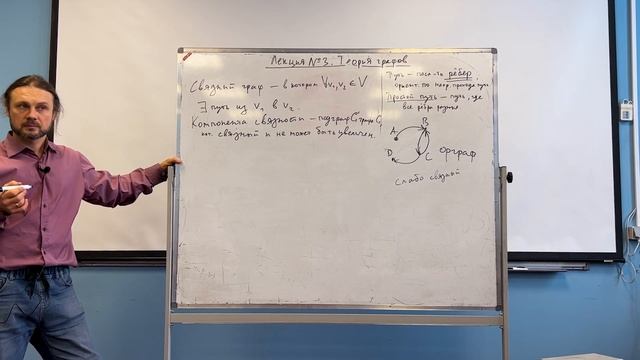 Лекция №3. Теория графов
Связный граф – в котором ∀v₁,v₂ ∈ V
∃ путь из v₁ в v₂.
Компонента связности – подграф G' графа G,
кот. связный и не может быть увеличен.
Путь – посл-ть рёбер,
Простой путь – путь, где
все рёбра разные
A
B
C
D
орграф
слабо связный